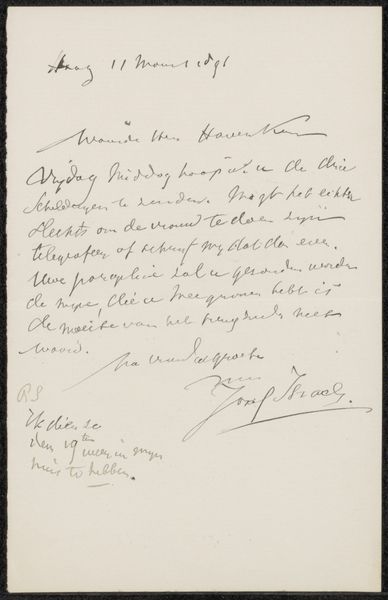 11 Maart 1891
Waarde Heer Haverkorn
Vrijdag Middag hoop ik u de drie
Schilderijen te zenden. Mogt het echter
slechts om de vrouw te doen zijn
telegrafeer of schrijf my dat dan eens.
Uwe zal u gezonden worden
de myne, die u hebt is
de moeite van het niet
waard.
na vriendelyke groete
Jozef Israels.
PS
Ik dien ze
den 19ten weer in myn
huis te hebben.